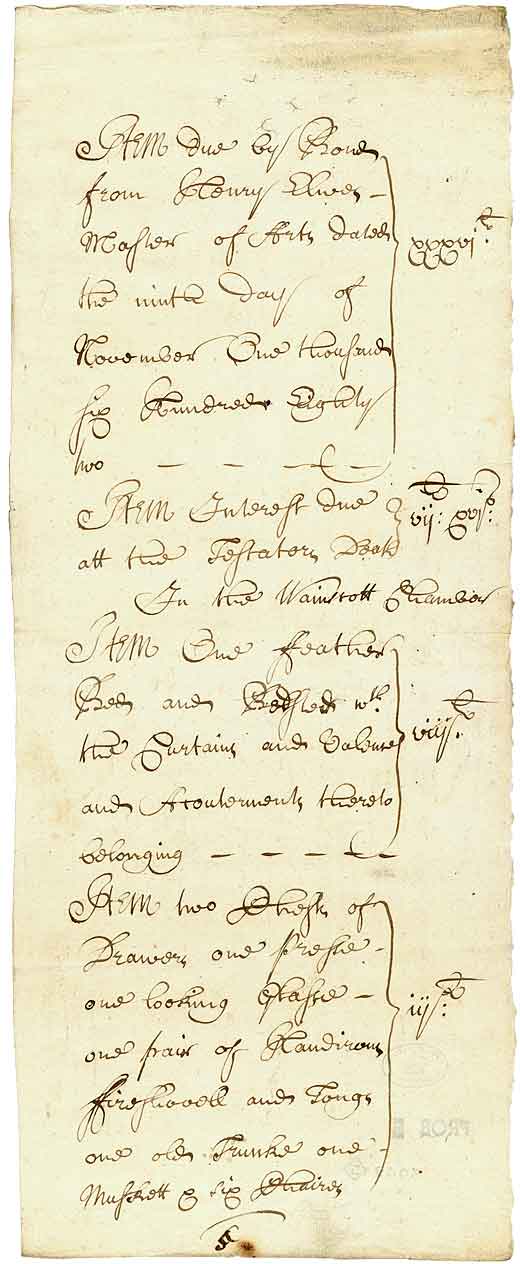 Item due by Bond
from Henry Elwes
Master of Arts dated
the ninth day of
xxxvi li
November One thousand
six Hundred Eighty
two
Item Interest due
att the Testators Death
vii li: xvi s:
In the Wainscott Chamber
Item One feather
Bed and Bedsted wth
the Curtains and Valence
viii li:
and Acouterments thereto
belonging
Item two Chests of
Drawers one presse
one looking Glasse
iii li:
one pair of Handirons
fireshovell and Tongs
one old Trunke one
Muskett & six Chaires